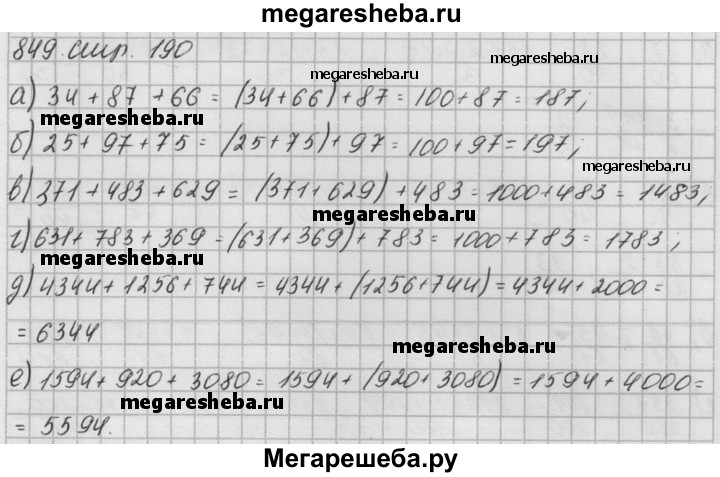 megaresheba.ru
849 стр. 190
megaresheba.ru
а) 34 + 87 + 66 = (34 + 66) + 87 = 100 + 87 = 187;
megaresheba.ru
б) 25 + 97 + 75 = (25 + 75) + 97 = 100 + 97 = 197;
megaresheba.ru
в) 371 + 483 + 629 = (371 + 629) + 483 = 1000 + 483 = 1483;
megaresheba.ru
г) 631 + 783 + 369 = (631 + 369) + 783 = 1000 + 783 = 1783;
megaresheba.ru
д) 4344 + 1256 + 744 = 4344 + (1256 + 744) = 4344 + 2000 =
= 6344
megaresheba.ru
е) 1594 + 920 + 3080 = 1594 + (920 + 3080) = 1594 + 4000 =
megaresheba.ru
= 5594.
Мегарешеба.ру